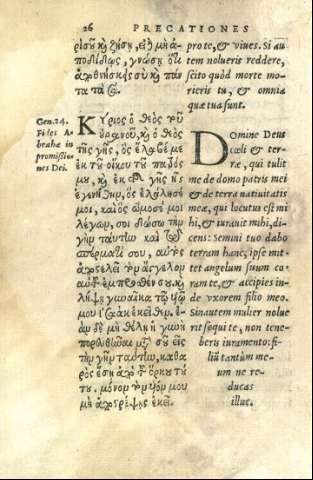 26 PRECATIONES
ρίσου κỳ ζήσῃ, εἰ ἢ μὴ ἀ-
ποδίδως, γνῶσῃ ὅτι
ἀποθνήσκεις σὺ κỳ πάν
τα τὰ σά.
Gen. 24.
Fides A-
brahæ in
promissio-
nes Dei.
Κύριος ὁ θεὸς τοῦ
οὐρανοῦ, κỳ ὁ θεὸς
τῆς γῆς, ὃς ἔλαβέ με
ἐκ τοῦ οἴκου τοῦ πατρός
μου, κỳ ἐκ τῆς γῆς ἧς
ἐγενήθην, ὃς ἐλάλησέ
μοι, καὶ ὃς ὤμοσέ μοι
λέγων, σοὶ δώσω τὴν
γῆν ταύτην καὶ τῷ
σπέρματί σου, αὐτὸς
ἀποστελεῖ τὸν ἄγγελον
αὐτοῦ ἔμπροσθέν σου, κỳ
λήψῃ γυναῖκα τῷ υἱῷ
μου Ἰσαὰκ ἐκεῖθεν. ἐ-
ὰν δὲ μὴ θέλῃ ἡ γυνὴ
πορευθῆναι μετὰ σοῦ εἰς
τὴν γῆν ταύτην, καθα
ρὸς ἔσῃ ἀπὸ τοῦ ὅρκου τού
του. μόνον τὸν υἱόν μου
μὴ ἀποστρέψῃς ἐκεῖ.
pro te, & viues. Si au
tem nolueris reddere,
scito quòd morte mo-
rieris tu, & omnia
quæ tua sunt.
Domine Deus
cæli & ter-
ræ, qui tulit
me de domo patris mei
& de terra natiuitatis
meæ, qui locutus est mi
hi, & iurauit mihi, di-
cens: semini tuo dabo
terram hanc, ipse mit-
tet angelum suum co-
ram te, & accipies in-
de vxorem filio meo.
Sin autem mulier nolue
rit sequi te, non tene-
beris iuramento: fi-
liū tantùm me-
um ne re-
ducas
illuc.